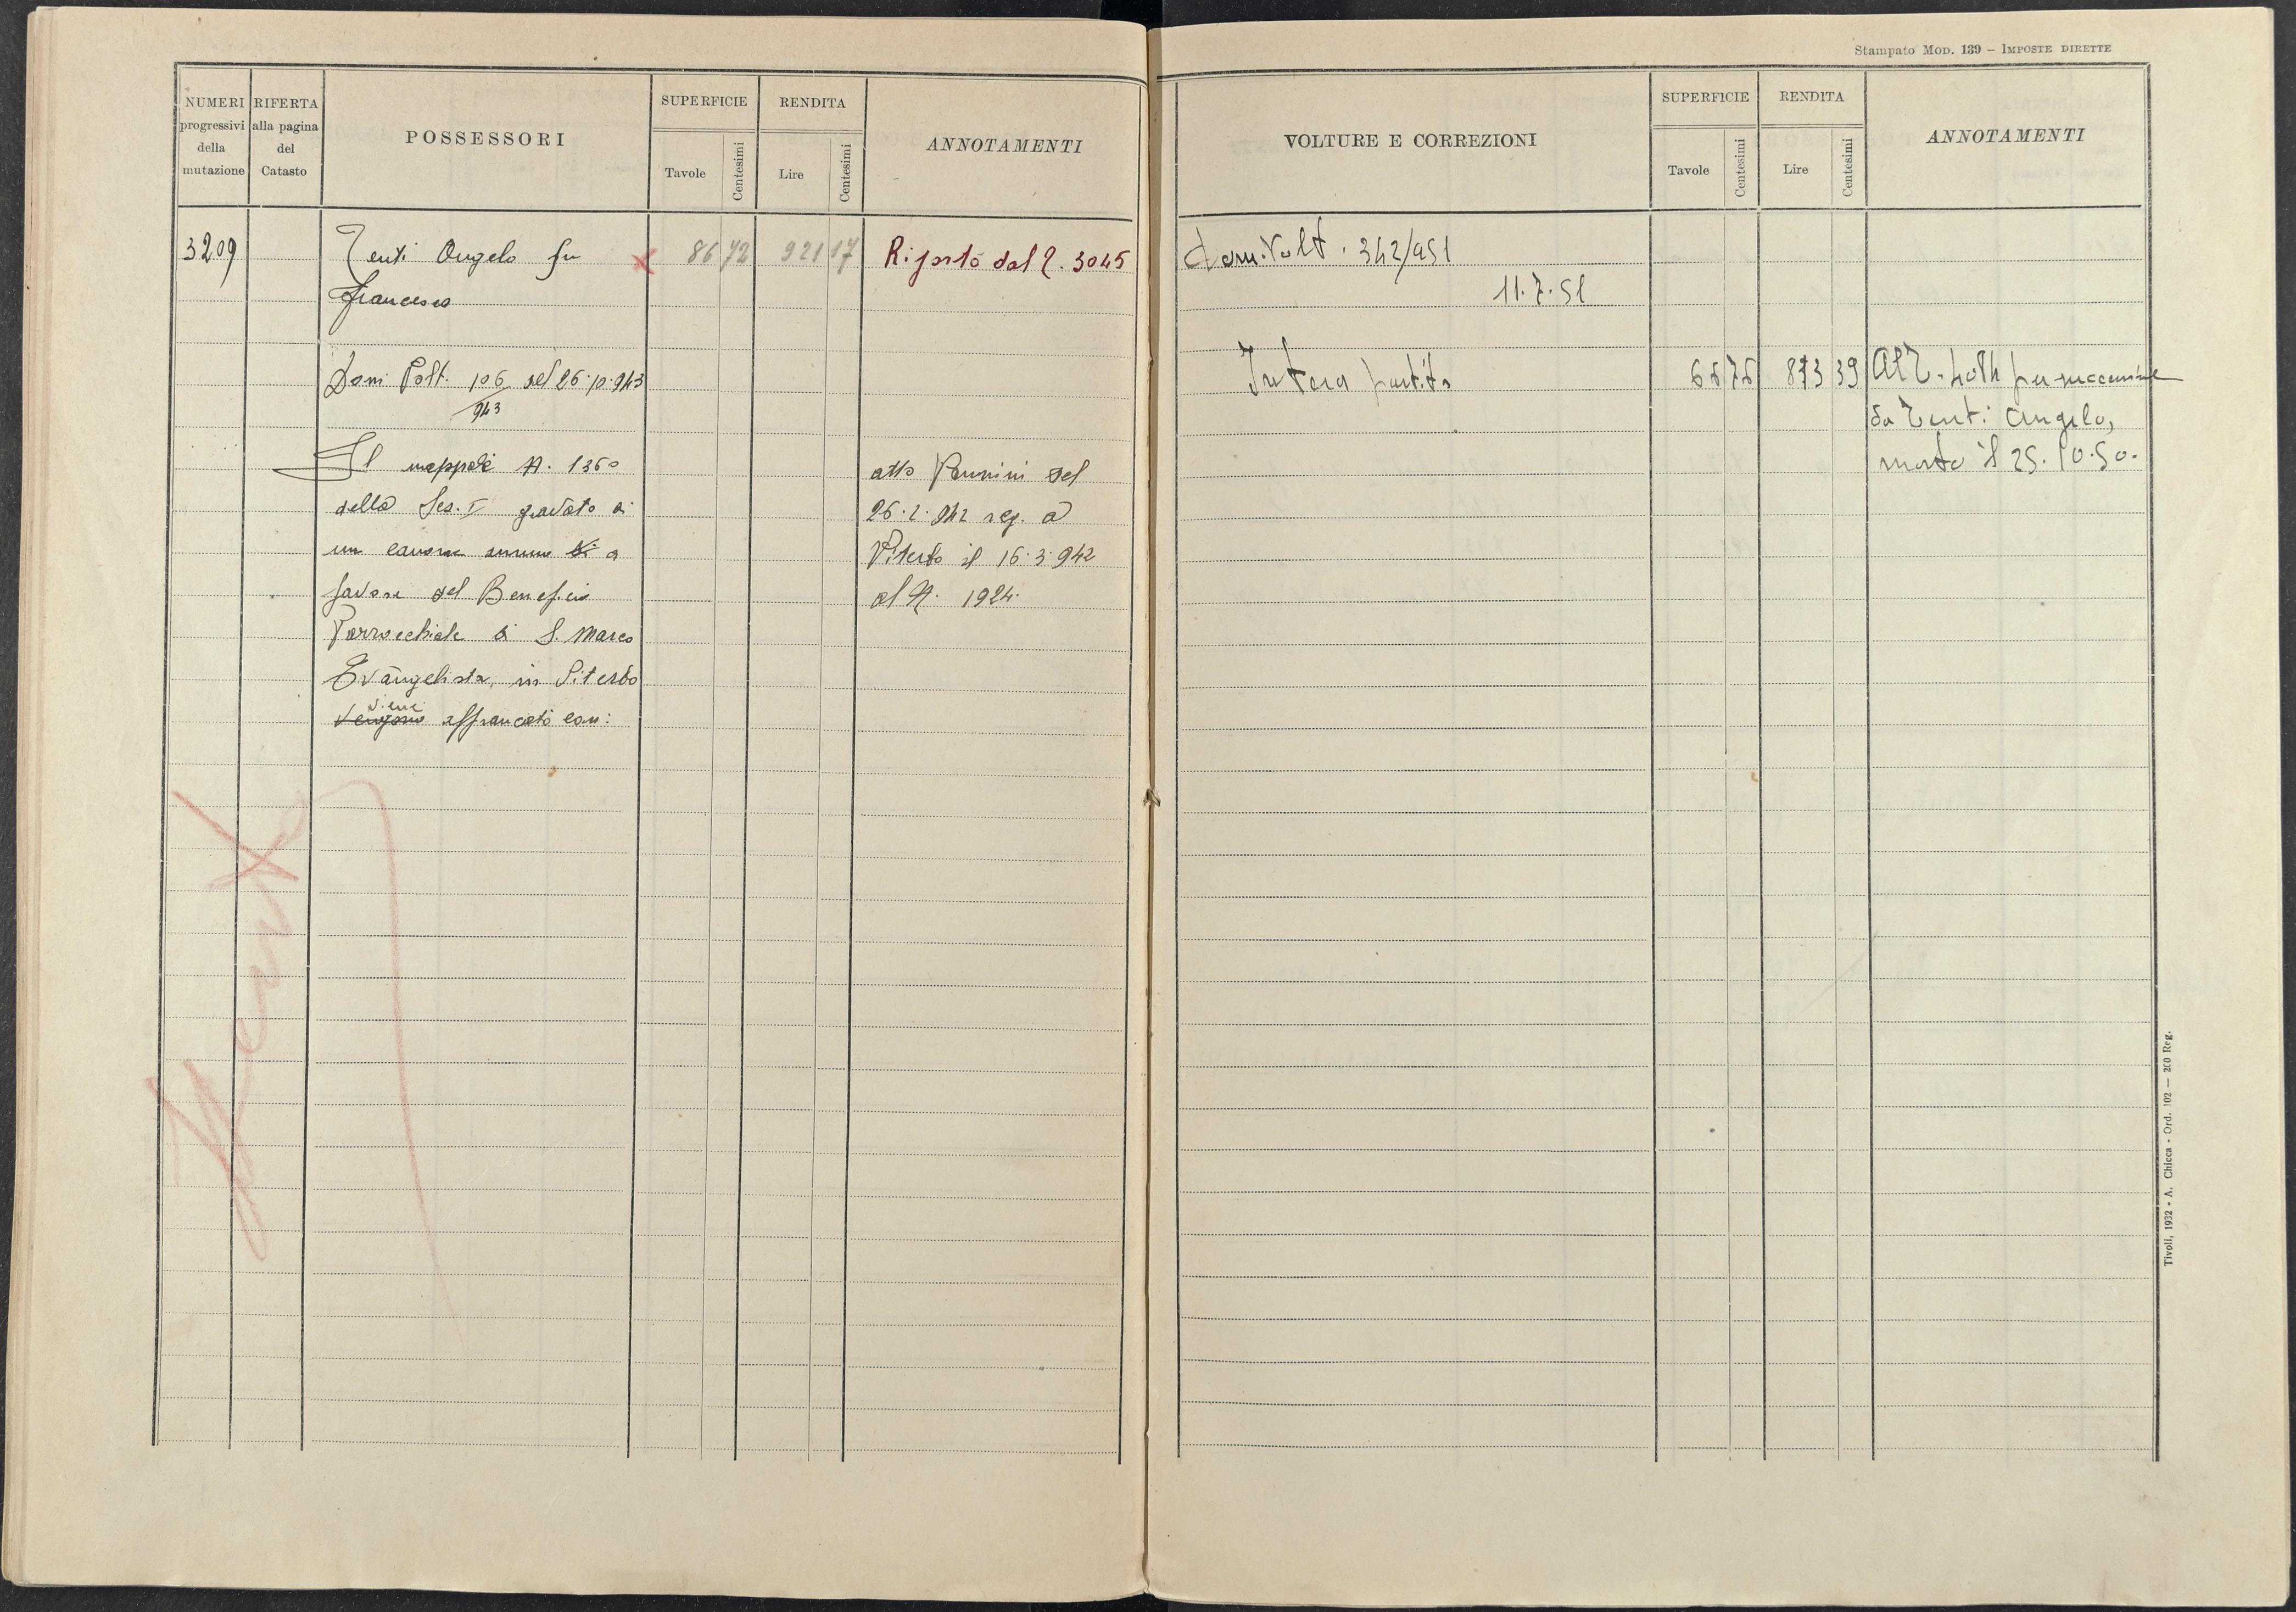 Stampato Mod. 139 – Imposte dirette
NUMERI progressivi della mutazione
RIFERTA alla pagina del Catasto
POSSESSORI
SUPERFICIE
Tavole
Centesimi
RENDITA
Lire
Centesimi
ANNOTAMENTI
VOLTURE E CORREZIONI
SUPERFICIE
Tavole
Centesimi
RENDITA
Lire
Centesimi
ANNOTAMENTI
3209
Zenti Angelo fu
86 72 921 17
Riporto dal 2. 3045
Francesco
Dom. Volt. 106/943 del 26.10.943
Il mappale N. 1360
della Sez. I gravato di
un canone annuo di a
favore del Beneficio
Parrocchiale di S. Marco
Evangelista, in Viterbo
Vengono viene affrancato con:
atto del
26.2.942 reg. a
Viterbo il 16.3.942
al N. 1924.
Dom. Volt. 342/951
11.7.51
Intera partita
873 39
per successione
da Zenti Angelo,
morto il 25.10.50.
Tivoli, 1932 - A. Chicca - Ord. 102 — 200 Reg.